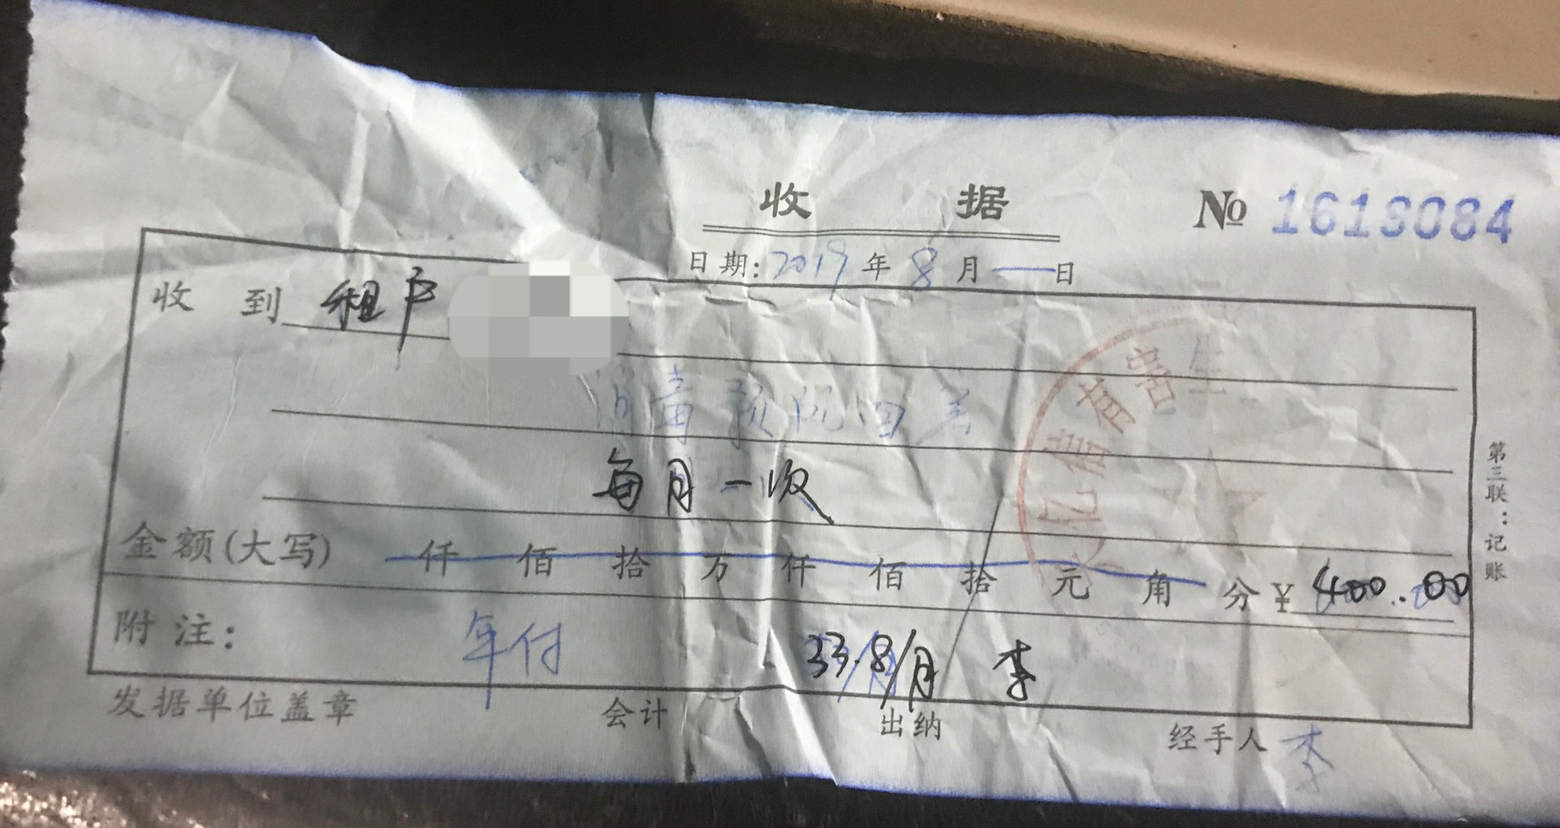 收 据
№ 1613084
日期: 2019 年 8 月 一 日
收 到 租户
消毒预防四害
每月一次
金额(大写) 仟 佰 拾 万 仟 佰 拾 元 角 分 ¥ 400.00
附 注: 年付 33.8/月 李
发据单位盖章 会计 出纳 经手人 李
第三联:记账
亿信有害生